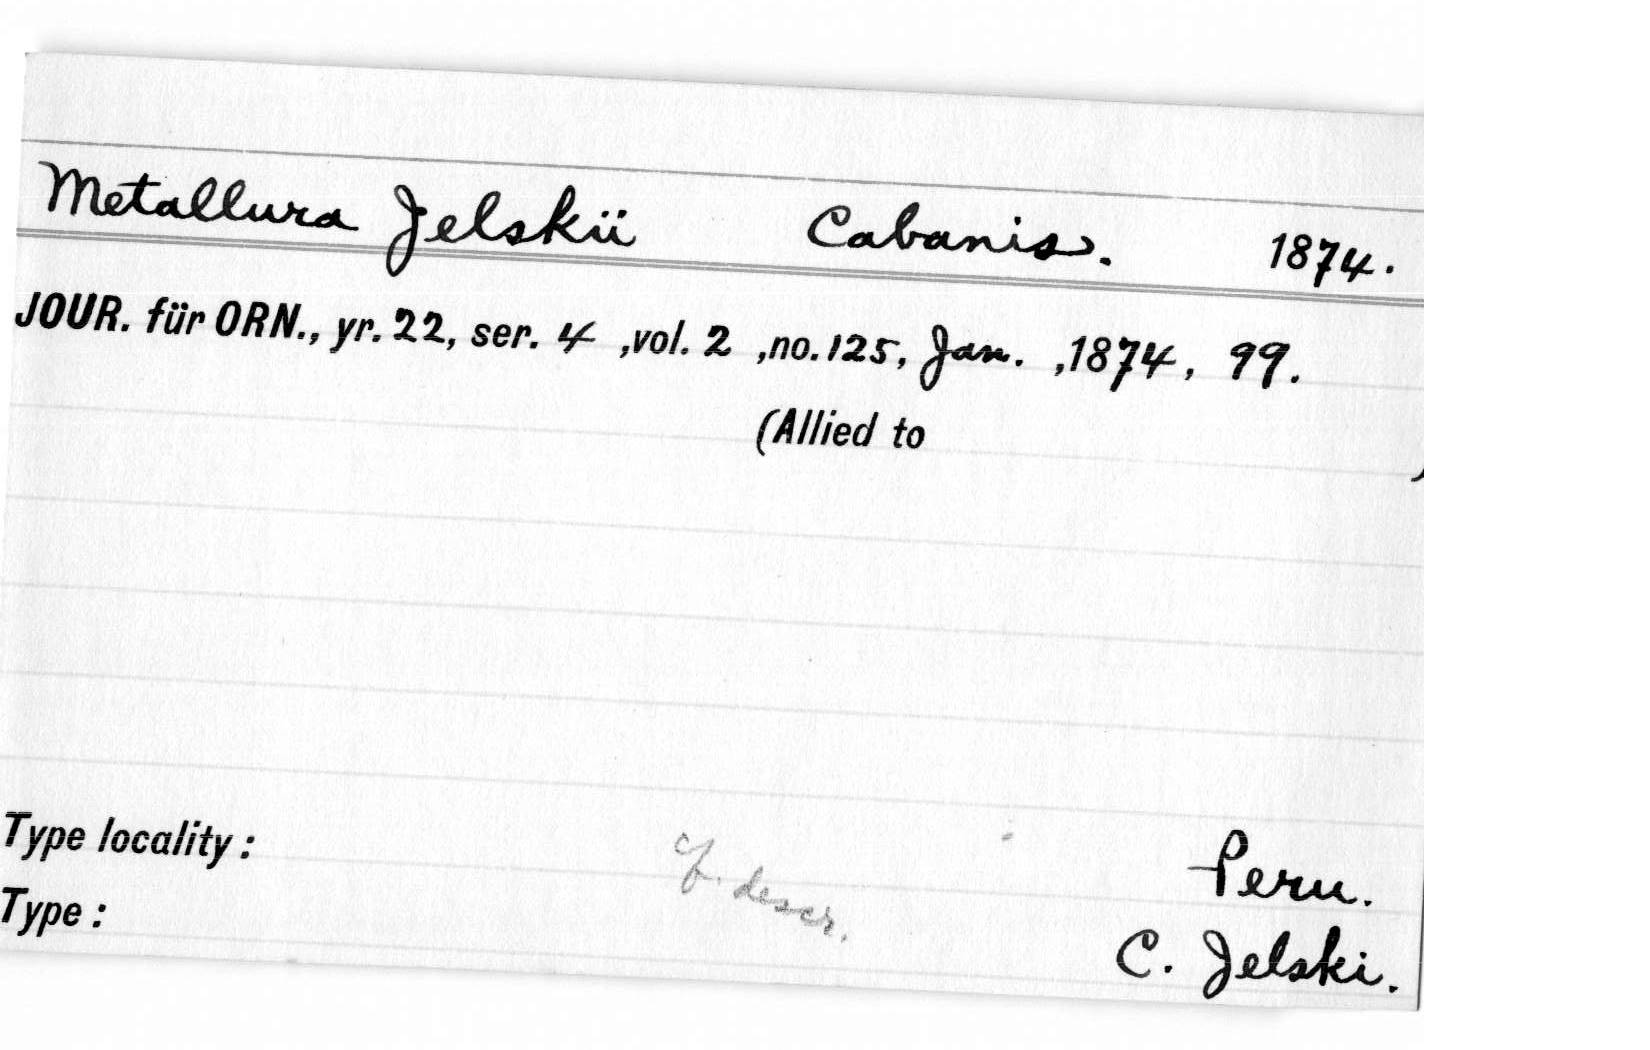 Metallura Jelskii Cabanis. 1874.
JOUR. für ORN., yr. 22, ser. 4 ,vol. 2 ,no. 125, Jan. ,1874, 99.
(Allied to )
Type locality : Peru.
descr.
Type : C. Jelski.